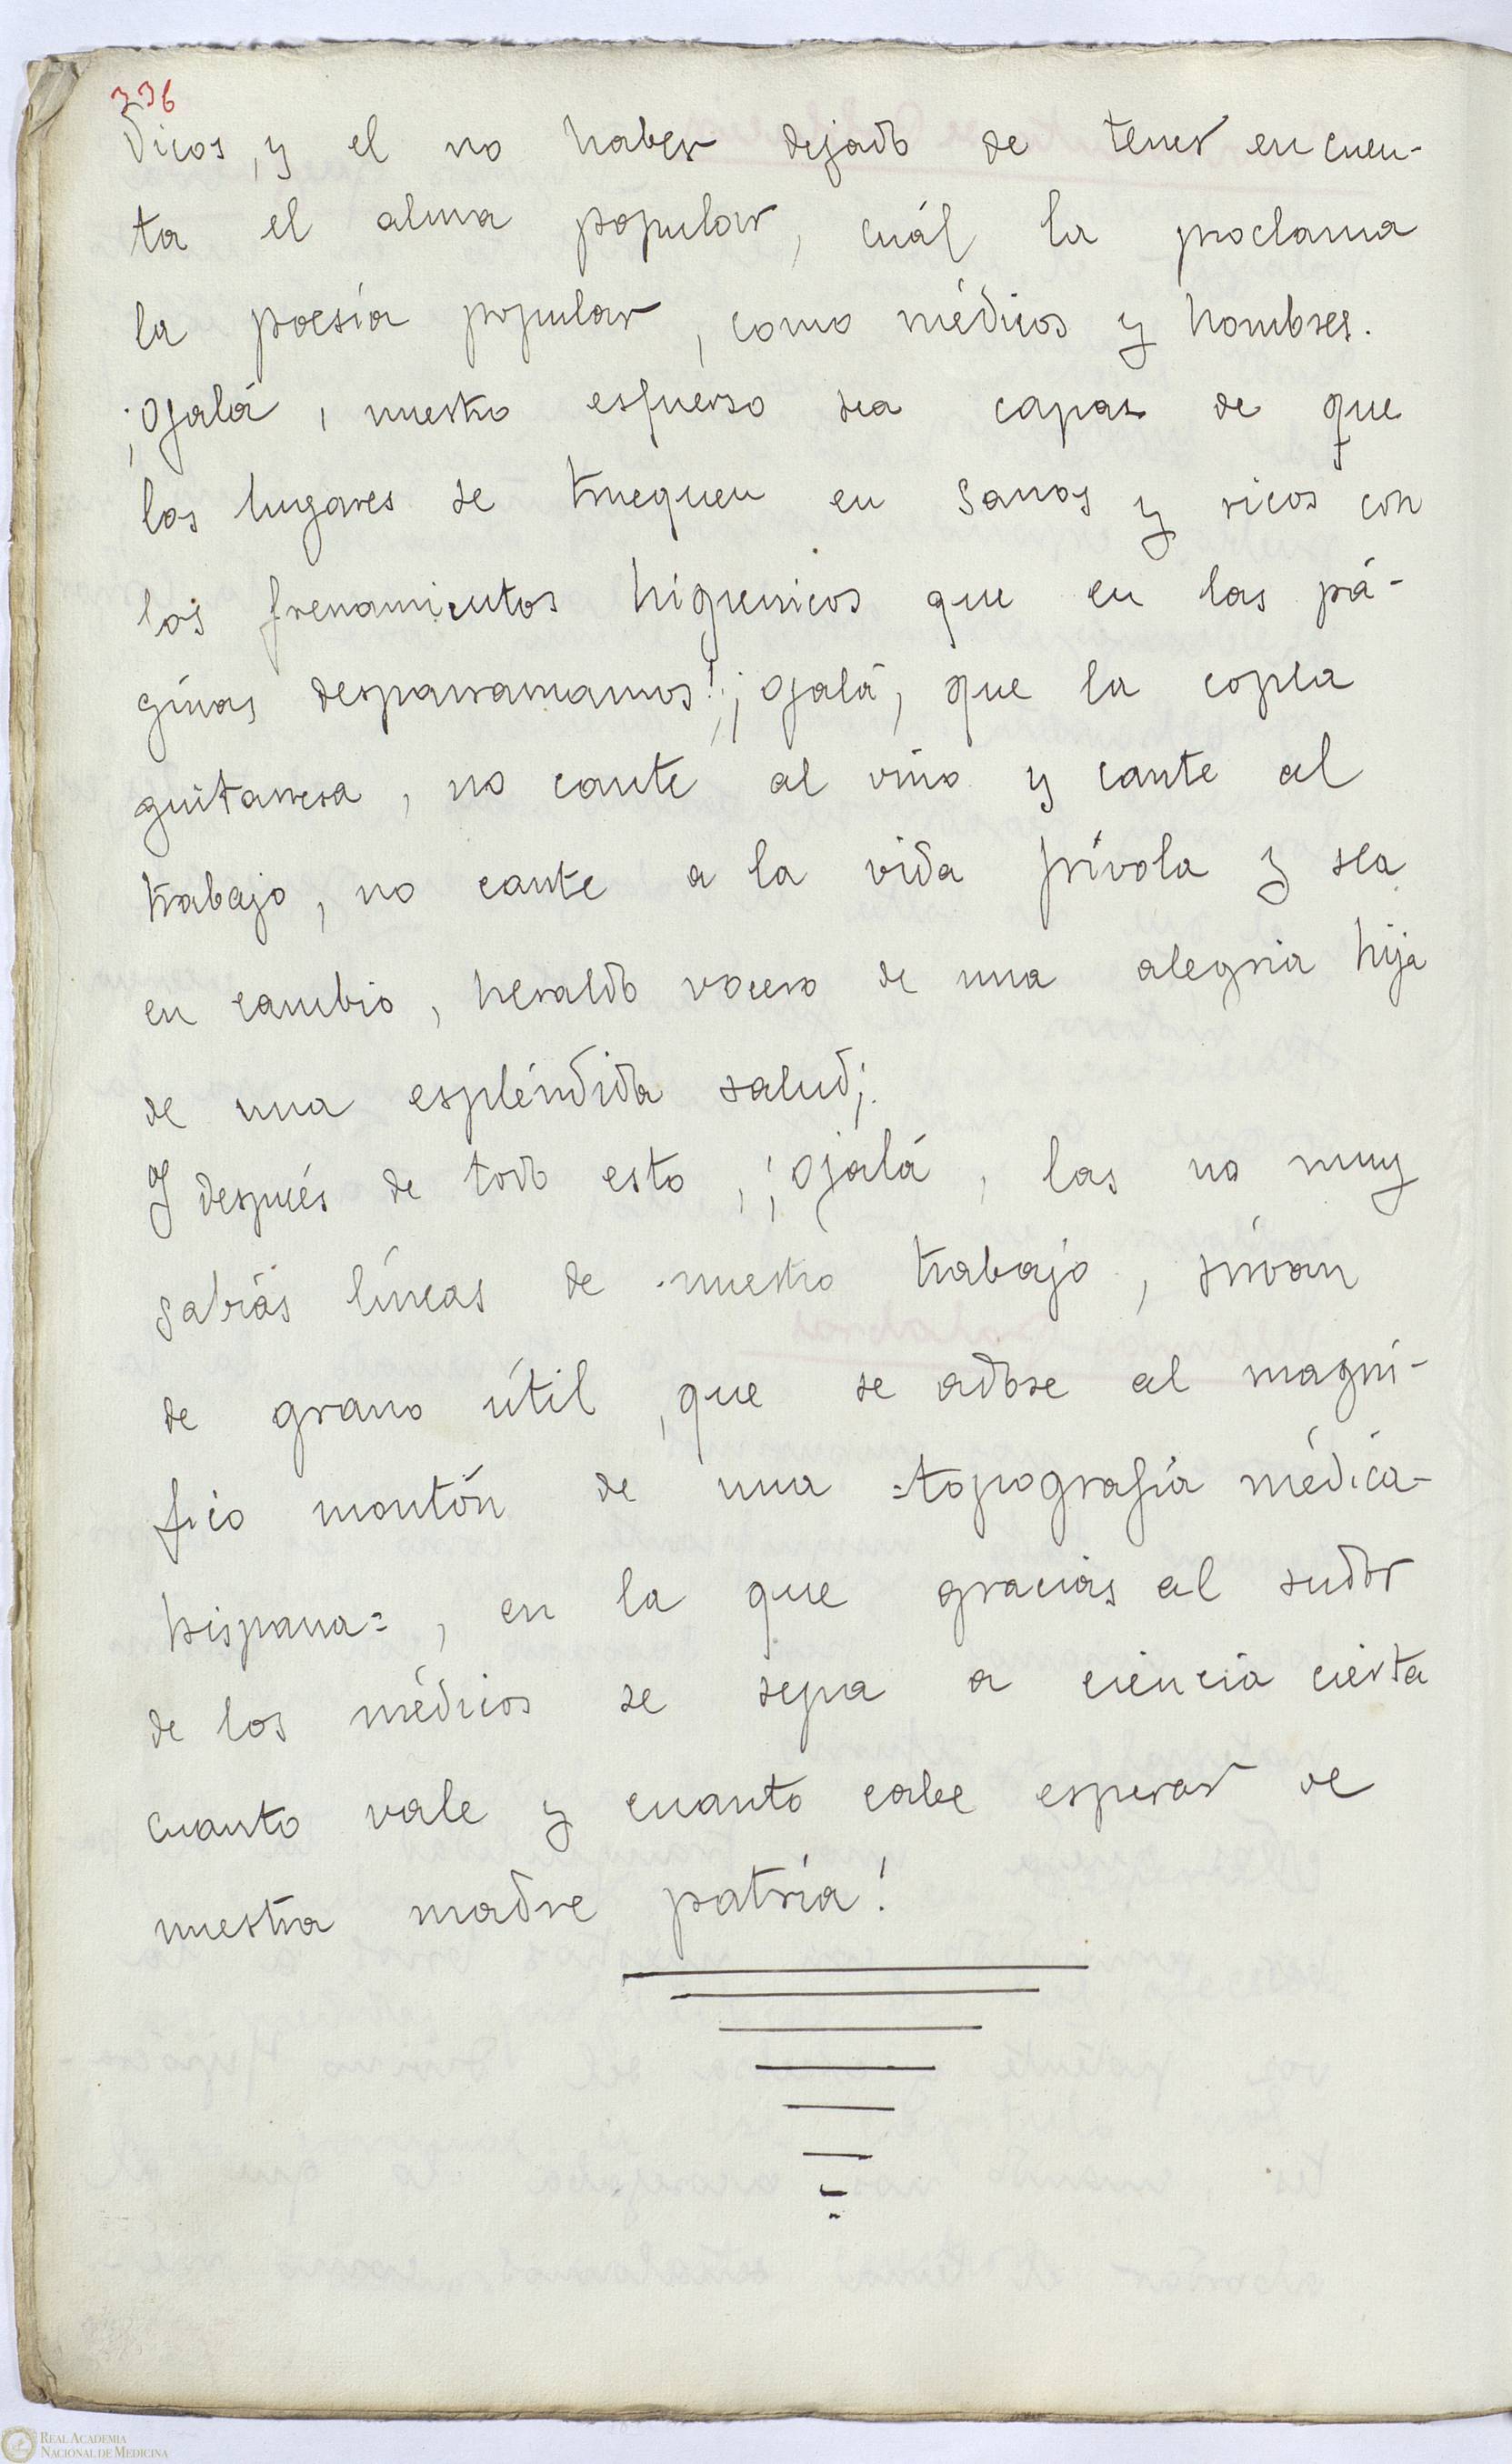 336
dicos, y el no haber dejado de tener en cuen-
ta el alma popular, cuál la proclama
la poesía popular, como médicos y hombres.
¡Ojalá, nuestro esfuerzo sea capaz de que
los lugares se truequen en sanos y ricos con
los frenamientos higienicos que en las pá-
ginas desparramamos!, ¡ojalá, que la copla
guitarrera, no cante al vino y cante al
trabajo, no cante a la vida frívola y sea
en cambio, heraldo vocero de una alegria hija
de una espléndida salud¡.
Y después de todo esto, ¡ojalá, las no muy
sabias líneas de nuestro trabajo, sirvan
de grano útil, que se adose al magní-
fico montón de una =topografía médica-
hispana=, en la que gracias al sudor
de los médicos se sepa a ciencia cierta
cuanto vale y cuanto cabe esperar de
nuestra madre patria!
REAL ACADEMIA
NACIONAL DE MEDICINA